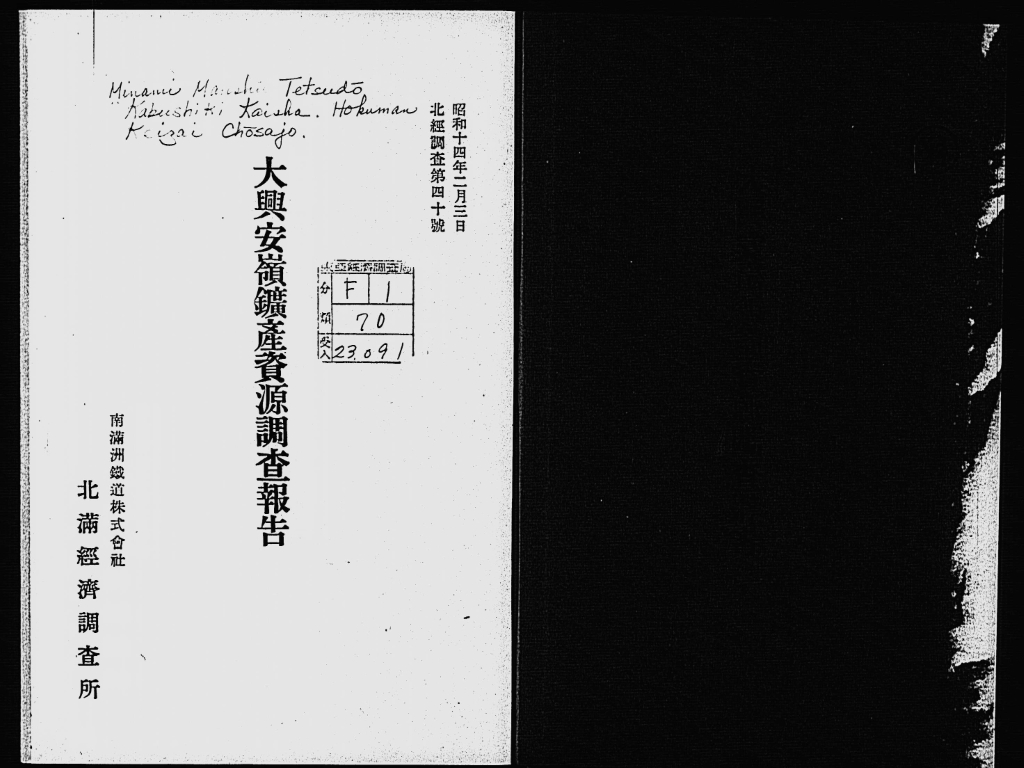 Minami Manshū Tetsudō
Kabushiki Kaisha. Hokuman
Keizai Chōsajo.
昭和十四年二月三日
北經調查第四十號
大興安嶺鑛產資源調查報告
分類 F 1
70
受入 23.091
南滿洲鐵道株式會社
北滿經濟調查所